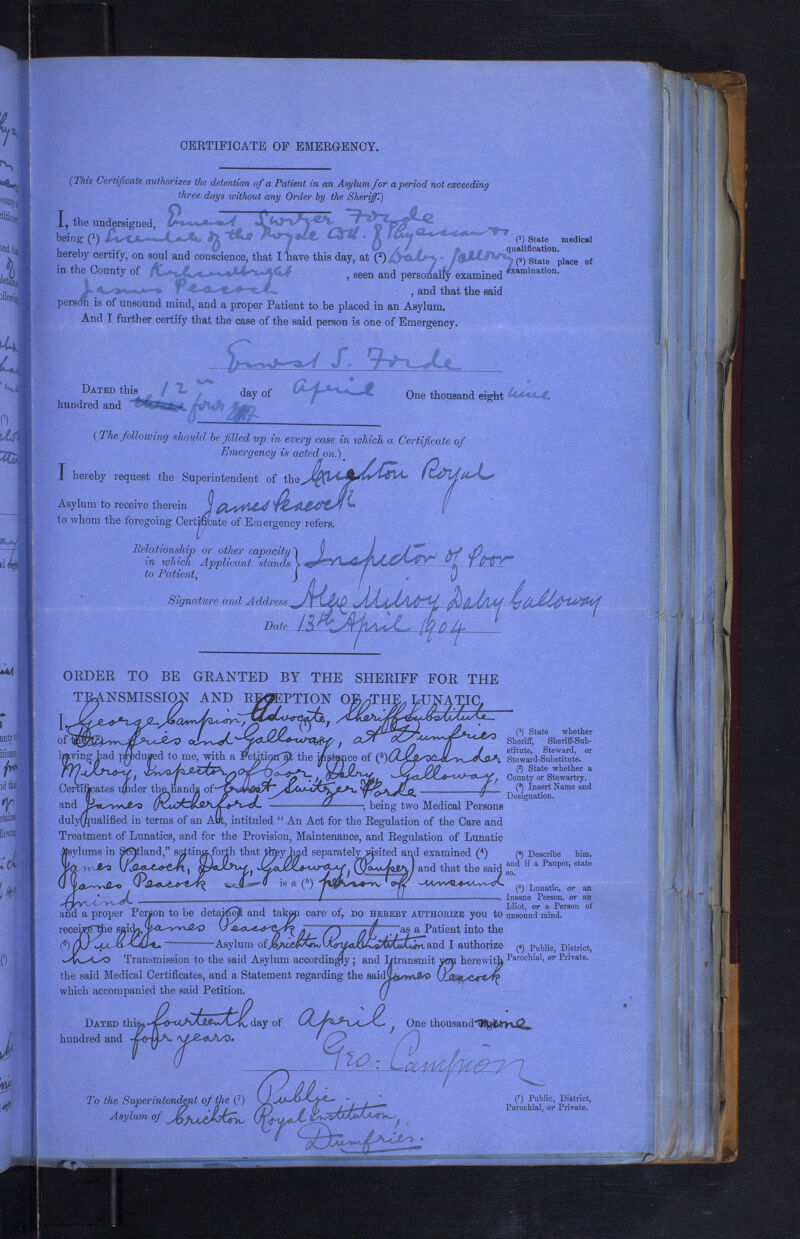 CERTIFICATE OF EMERGENCY.
(This Certificate authorizes the detention of a Patient in an Asylum for a period not exceeding
three days without any Order by the Sheriff.)
I, the undersigned, Ernest Switzer Forde
being (1) Licentiate of the Royal Coll. of Physicians
(1) State medical
qualification.
hereby certify, on soul and conscience, that I have this day, at (2) Dalry. Galloway
(2) State place of
examination.
in the County of Kirkcudbright , seen and personally examined
James Peacock , and that the said
person is of unsound mind, and a proper Patient to be placed in an Asylum.
And I further certify that the case of the said person is one of Emergency.
Ernest S. Forde
DATED this 12th day of April One thousand eight nine
hundred and four
(The following should be filled up in every case in which a Certificate of
Emergency is acted on.)
I hereby request the Superintendent of the Crichton Royal
Asylum to receive therein James Peacock
to whom the foregoing Certificate of Emergency refers.
Relationship or other capacity
in which Applicant stands
to Patient,
Inspector of Poor
Signature and Address Alex Milroy Dalry Galloway
Date 13th April 1904
ORDER TO BE GRANTED BY THE SHERIFF FOR THE
TRANSMISSION AND RECEPTION OF THE LUNATIC.
I, George Campion, Advocate, Sheriff Substitute
of Dumfries and Galloway, at Dumfries
(1) State whether
Sheriff, Sheriff-Sub-
stitute, Steward, or
Steward-Substitute.
having had produced to me, with a Petition at the instance of (3) Alexander
(2) State whether a
County or Stewartry.
Milroy, Inspector of Poor, Dalry, Galloway,
(3) Insert Name and
Designation.
Certificates under the hands of Ernest Switzer Forde
and James Rutherford , being two Medical Persons
duly qualified in terms of an Act, intituled "An Act for the Regulation of the Care and
Treatment of Lunatics, and for the Provision, Maintenance, and Regulation of Lunatic
Asylums in Scotland," setting forth that they had separately visited and examined (4)
(4) Describe him,
and if a Pauper, state
so.
James Peacock, Dalry, Galloway, (Pauper) and that the said
James Peacock is a (5) person of unsound
(5) Lunatic, or an
Insane Person, or an
Idiot, or a Person of
unsound mind.
mind
and a proper Person to be detained and taken care of, DO HEREBY AUTHORIZE you to
receive the said James Peacock as a Patient into the
(6) Public Asylum of Crichton Royal Institution and I authorize
(6) Public, District,
Parochial, or Private.
his Transmission to the said Asylum accordingly; and I transmit you herewith
the said Medical Certificates, and a Statement regarding the said James Peacock
which accompanied the said Petition.
DATED this fourteenth day of April, One thousand nine
hundred and four years.
Geo: Campion
To the Superintendent of the (7) Public
(7) Public, District,
Parochial, or Private.
Asylum of Crichton Royal Institution,
Dumfries.